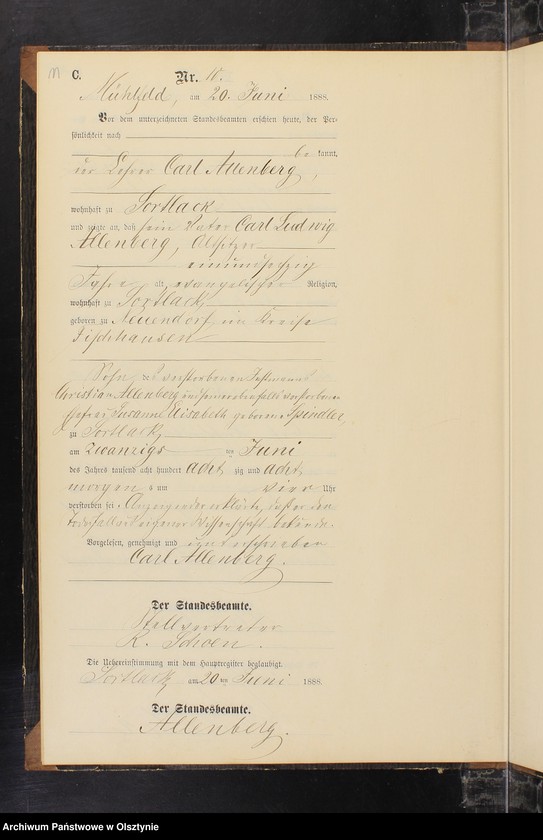 C.
Nr. 18.
Mühlfeld, am 20. Juni 1888.
Vor dem unterzeichneten Standesbeamten erschien heute, der Per-
sönlichkeit nach
be kannt,
der Lehrer Carl Allenberg,
wohnhaft zu Sortlack
und zeigte an, daß sein Vater Carl Ludwig
Allenberg, Altsitzer
einundsechzig
Jahre alt, evangelischer Religion,
wohnhaft zu Sortlack,
geboren zu Neuendorf im Kreise
Fischhausen
Sohn des verstorbenen
Christian Allenberg und verstorbenen
Ehefrau Susanne Elisabeth geborene Spindler,
zu Sortlack,
am zwanzigs ten Juni
des Jahres tausend acht hundert acht zig und acht
morgen s um vier Uhr
verstorben sei. Anzeigender erklärte, daß er den
Todesfall aus eigener Wissenschaft bekunde.
Vorgelesen, genehmigt und unterschrieben
Carl Allenberg.
Der Standesbeamte.
Stellvertreter
R. Schoen.
Die Uebereinstimmung mit dem Hauptregister beglaubigt.
Sortlack, am 20 ten Juni 1888.
Der Standesbeamte.
Allenberg.
Archiwum Państwowe w Olsztynie